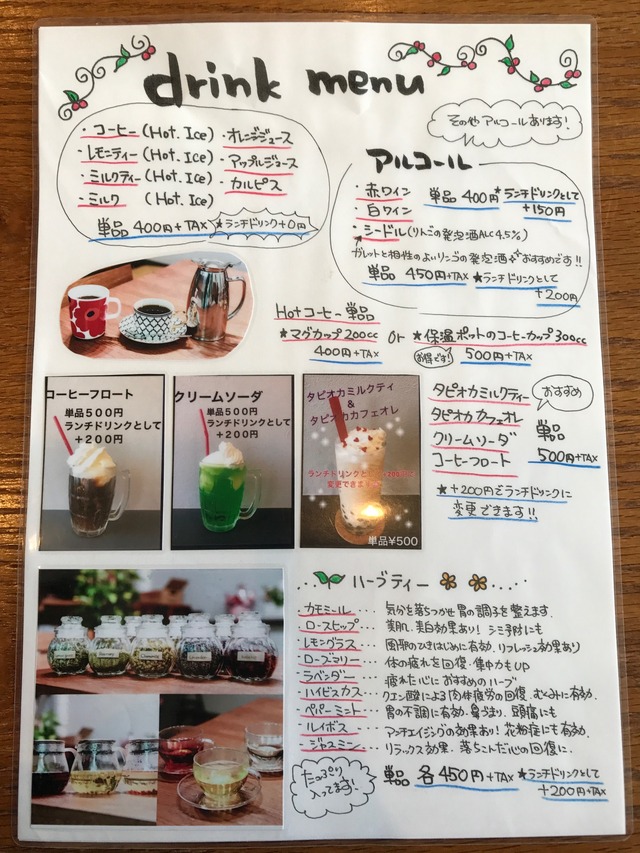 drink menu
・コーヒー (Hot. Ice)
・レモンティー (Hot. Ice)
・ミルクティー (Hot. Ice)
・ミルク (Hot. Ice)
・オレンジジュース
・アップルジュース
・カルピス
単品 400円+TAX ★ランチドリンク+0円
その他 アルコールあります!
アルコール
・赤ワイン
白ワイン
単品 400円 ★ランチドリンクとして
+150円
・シードル(りんごの発泡酒ALC4.5%)
ガレットと相性のよいリンゴの発泡酒 おすすめです!!
単品 450円+TAX ★ランチドリンクとして
+200円
Hotコーヒー 単品
★マグカップ200cc or ★保温ポットのコーヒーカップ300cc
400円+TAX お得です! 500円+TAX
コーヒーフロート
単品500円
ランチドリンクとして
+200円
クリームソーダ
単品500円
ランチドリンクとして
+200円
タピオカミルクティ
&
タピオカカフェオレ
ランチドリンクに+200円
変更できます
単品¥500
タピオカミルクティー
タピオカ カフェオレ
クリームソーダ
コーヒーフロート
おすすめ
単品
500円+TAX
★+200円でランチドリンクに
変更できます!!
ハーブティー
カモミール・・・気分を落ちつかせ 胃の調子を整えます.
ローズヒップ・・・美肌、美白効果あり! シミ予防にも
レモングラス・・・風邪のひきはじめに有効、リフレッシュ効果あり
ローズマリー・・・体の疲れを回復・集中力もUP
ラベンダー・・・疲れた心に おすすめのハーブ
ハイビスカス・・・クエン酸による肉体疲労の回復、むくみに有効.
ペパーミント・・・胃の不調に有効・鼻づまり、頭痛にも
ルイボス・・・アンチエイジングの効果あり! 花粉症にも有効.
ジャスミン・・・リラックス効果・落ちこんだ心の回復に.
たっぷり
入ってます!
単品 各450円+TAX ★ランチドリンクとして
+200円+TAX